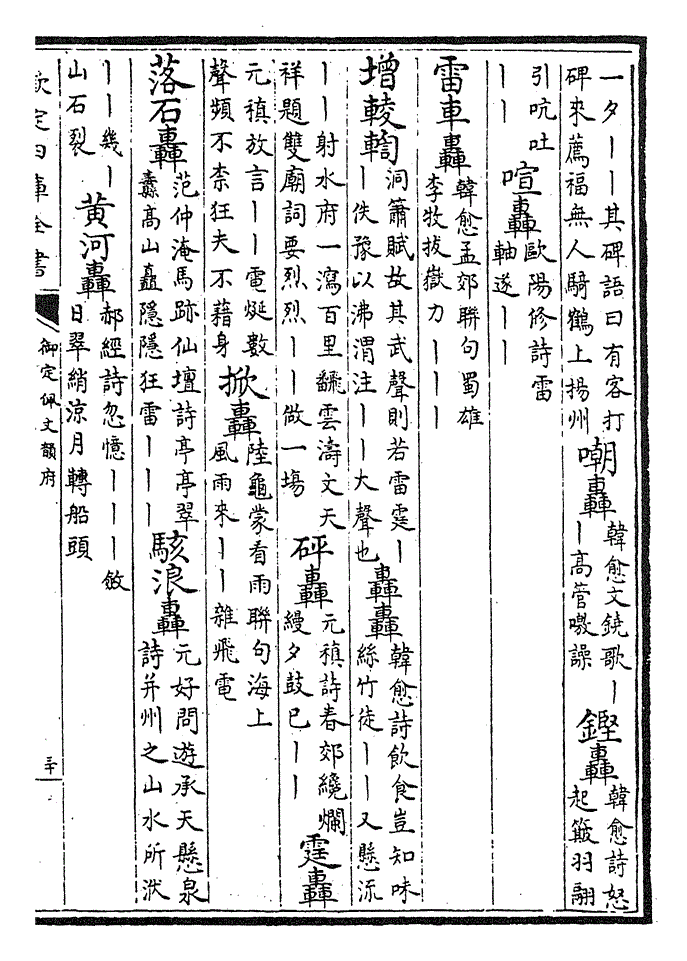 一夕丨丨其碑語曰有客打
碑來薦福無人騎鶴上揚州
嘲轟
韓愈文鐃歌丨
丨高管噭譟
鏗轟
韓愈詩怒
起簸羽翮
引吭吐
丨丨
喧轟
歐陽修詩雷
軸遂丨丨
雷車轟
韓愈孟郊聯句蜀雄
李牧拔嶽力丨丨丨
增輘輷
洞簫賦故其武聲則若雷霆丨
丨佚豫以沸渭注丨丨大聲也
轟轟
韓愈詩飲食豈知味
絲竹徒丨丨又懸流
丨丨射水府一瀉百里飜雲濤文天
祥題雙廟詞要烈烈丨丨做一塲
砰轟
元稹詩春郊纔爛
縵夕鼓已丨丨
霆轟
元稹放言丨丨電烻數
聲頻不柰狂夫不藉身
掀轟
陸龜蒙看雨聯句海上
風雨來丨丨雜飛電
落石轟
范仲淹馬跡仙壇詩亭亭翠
纛高山矗隱隱狂雷丨丨丨
駭浪轟
元好問遊承天懸泉
詩并州之山水所洑
丨丨幾丨
山石裂
黄河轟
郝經詩忽憶丨丨丨斂
日翠綃涼月轉船頭
欽定四庫全書
御定佩文韻府
三十